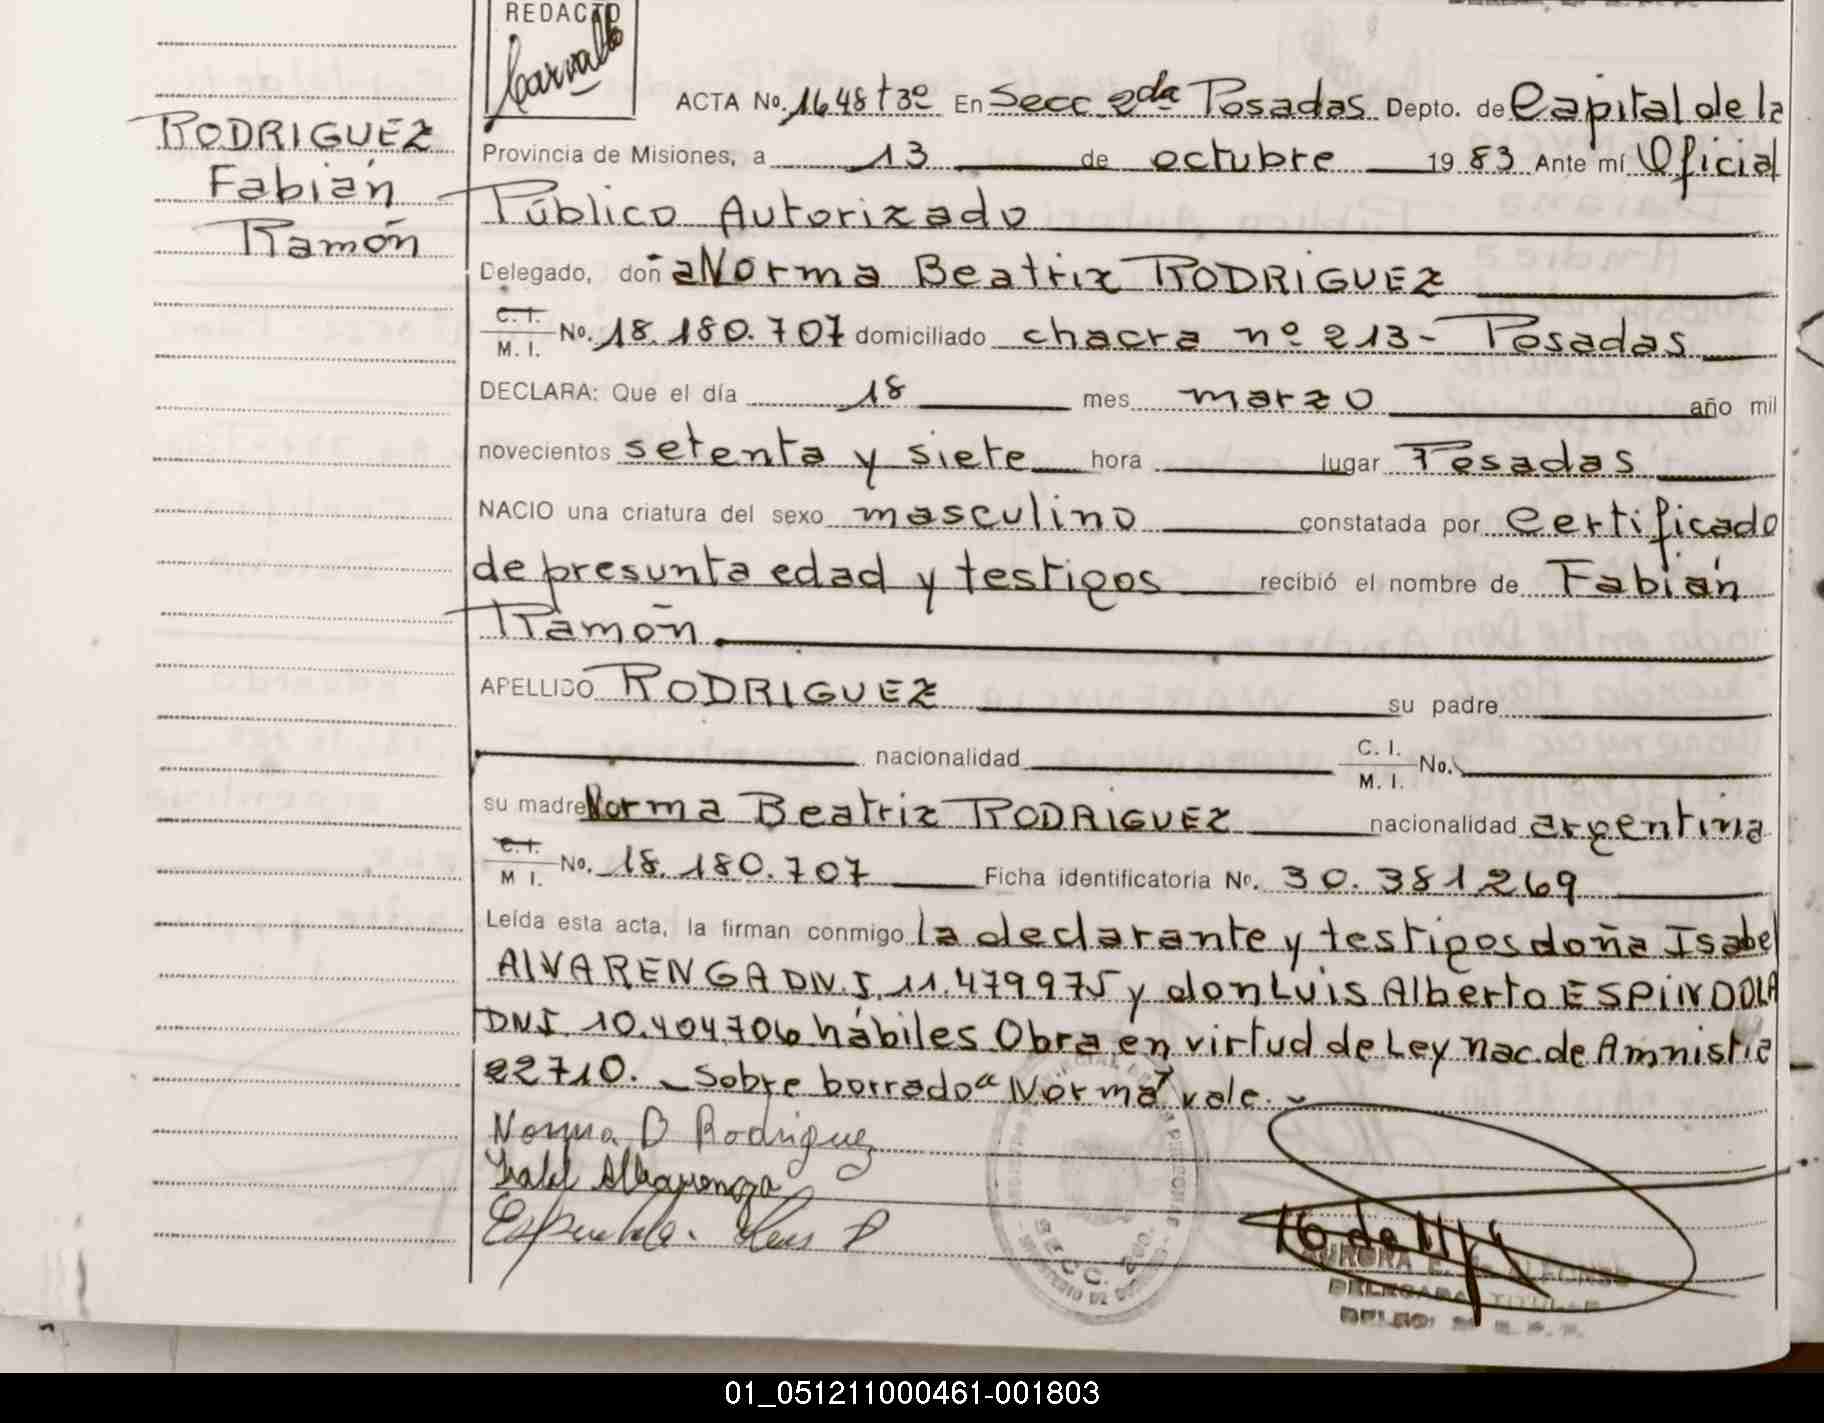 REDACTO
Carvallo
RODRIGUEZ
Fabián
Ramón
ACTA No. 1648 t 3º En Secc 2da Posadas Depto. de Capital de la
Provincia de Misiones, a 13 de octubre 1983 Ante mí Oficial
Público Autorizado
Delegado, don a Norma Beatriz RODRIGUEZ
C.I. M.I. No. 18.180.707 domiciliado chacra nº 213- Posadas
DECLARA: Que el día 18 mes marzo año mil
novecientos setenta y siete hora lugar Posadas
NACIO una criatura del sexo masculino constatada por Certificado
de presunta edad y testigos recibió el nombre de Fabián
Ramón
APELLIDO RODRIGUEZ su padre
nacionalidad C. I. M. I. No.
su madre Norma Beatriz RODRIGUEZ nacionalidad argentina
C.I. M I. No. 18.180.707 Ficha identificatoria Nº. 30.381269
Leída esta acta, la firman conmigo la declarante y testigos doña Isabel
ALVARENGA DN.I. 11.479975 y don Luis Alberto ESPINDOLA
DNI 10.404706 hábiles Obra en virtud de Ley Nac. de Amnistia
22710. - Sobre borrado "Norma" vale.
Norma B Rodriguez
Isabel Albarenga
Espindola. Luis
SECC. 2da.
AURORA E.
DELEGADA TITULAR
01_051211000461-001803